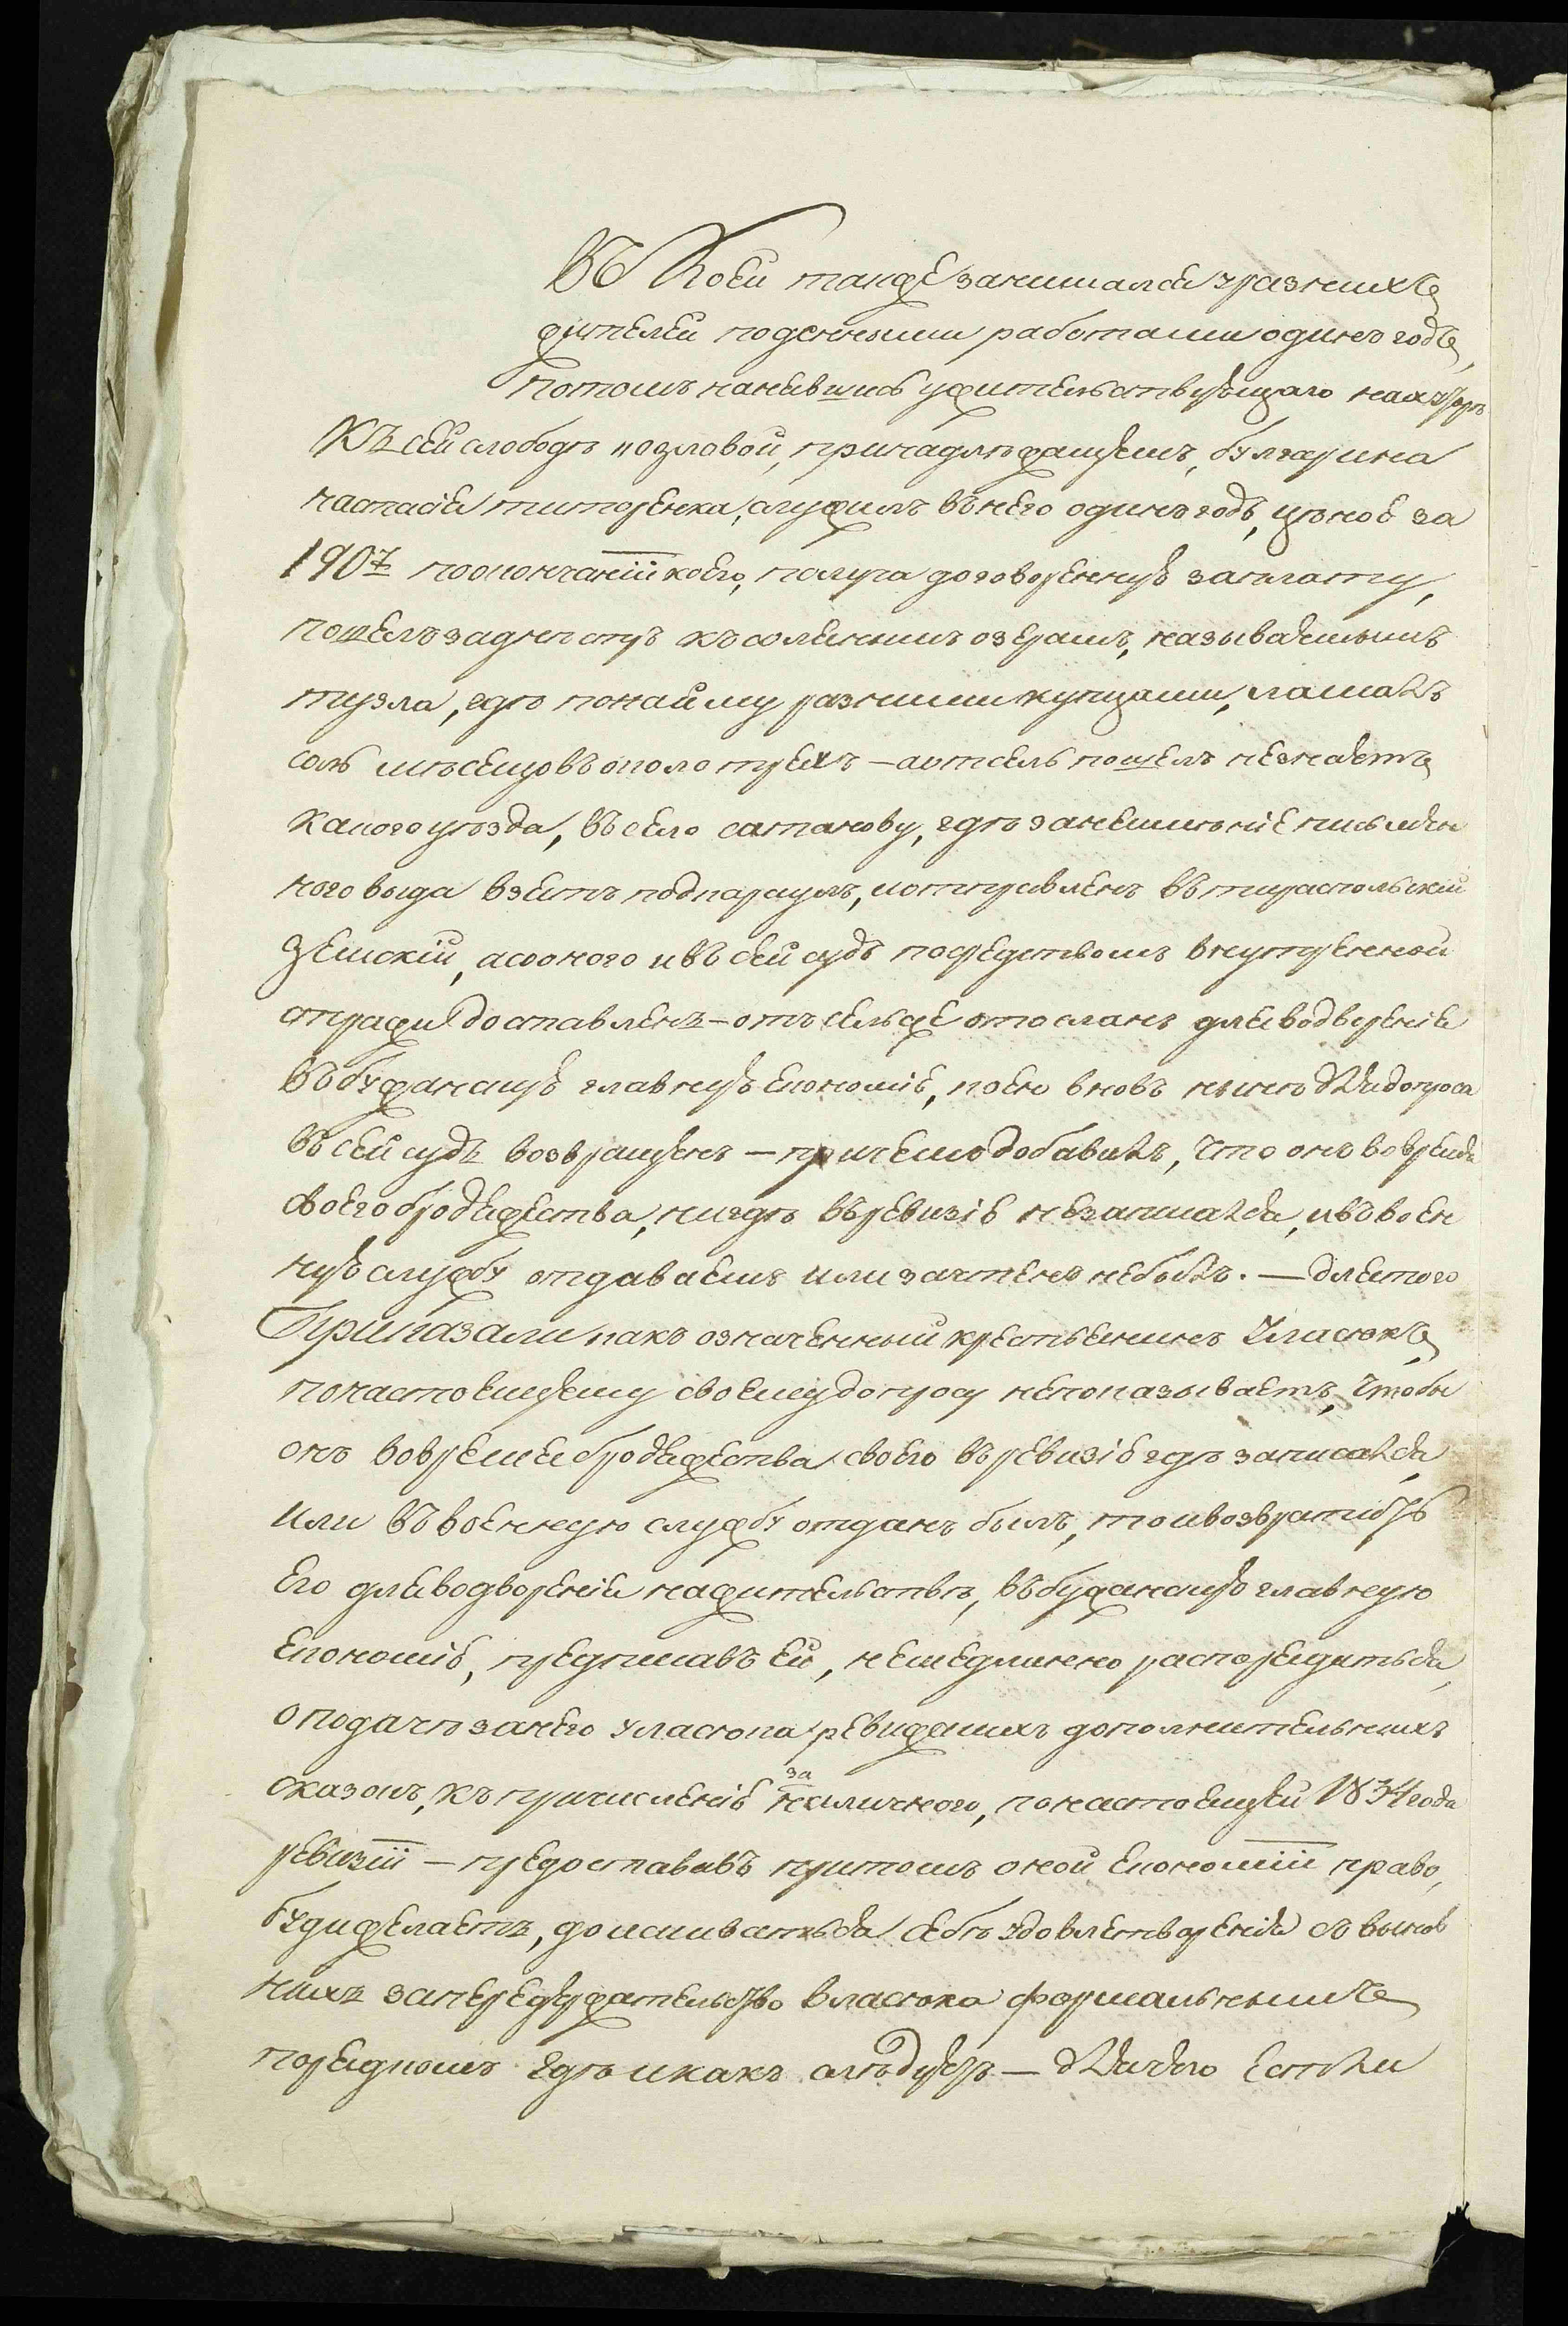 въ коей также занимался у разныхъ
жителей поденными работами одинъ годъ,
Потомъ нанявшись у жительствующаго на хуторѣ
Къ сей слободѣ Козловой, принадлежащемъ, булгарина
настасія титоренка, служилъ в него одинъ годъ, ценою за
190 р поокончаніи коего, получа договоренную заплату,
пошелъ за днестръ къ соленымъ озерамъ, называемымъ
тузла, где по найму разными купцами, ламалъ
соль мѣсецовъ около трехъ – аотсель пошелъ не знаетъ
какого уѣзда, въ село сатанову, гдѣ за неимѣніе письмен
ного вида взятъ подкараулъ, и отправленъ въ тираспольскій
Земскій, а со оного и въ сей судъ посредствомъ внутренной
стражи доставленъ – отъ сель же отосланъ для водворенія
въ бужанскую главную економію, коею вновь нынѣ для допроса
въ сей судъ возвращенъ – причемъ добавилъ, что онъ во время
своего бродяжества, нигдѣ въ ревизію не записался, и въ воен
ную службу отдаваемъ или зачтенъ не былъ. – для того
Приказали какъ означенный крестьянинъ Уласюкъ
по настоящему своему допросу не показываетъ, чтобы
онъ во время бродяжества своего въ ревизію гдѣ записался,
или въ военную службу отданъ былъ, то и возвратить
Его для водворенія на жительствѣ, въ бужанскую главную
економію, предписавъ ей, немедлинно распорядиться,
о подачѣ за него уласюка ревижскихъ дополнительныхъ
сказокъ, къ причисленію за наличного, по настоящей 1834 года
ревизіи – предоставивъ притомъ оной економіи право,
буди желаетъ, доискиваться себѣ удовлетворенія съ винов
ныхъ за передержательство власюка формальнымъ
порядкомъ гдѣ и какъ слѣдуетъ – для чего естьли